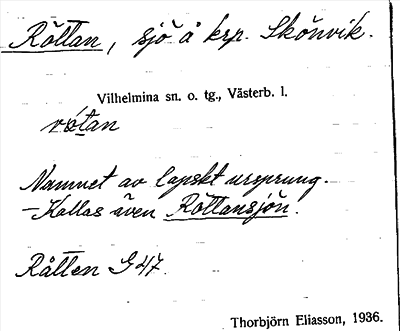 Röttan, sjö å krp. Skönvik.
Vilhelmina sn. o. tg., Västerb. l.
rátan
Namnet av lapskt ursprung.
– Kallas även Röttansjön.
Råtten G 47.
Thorbjörn Eliasson, 1936.